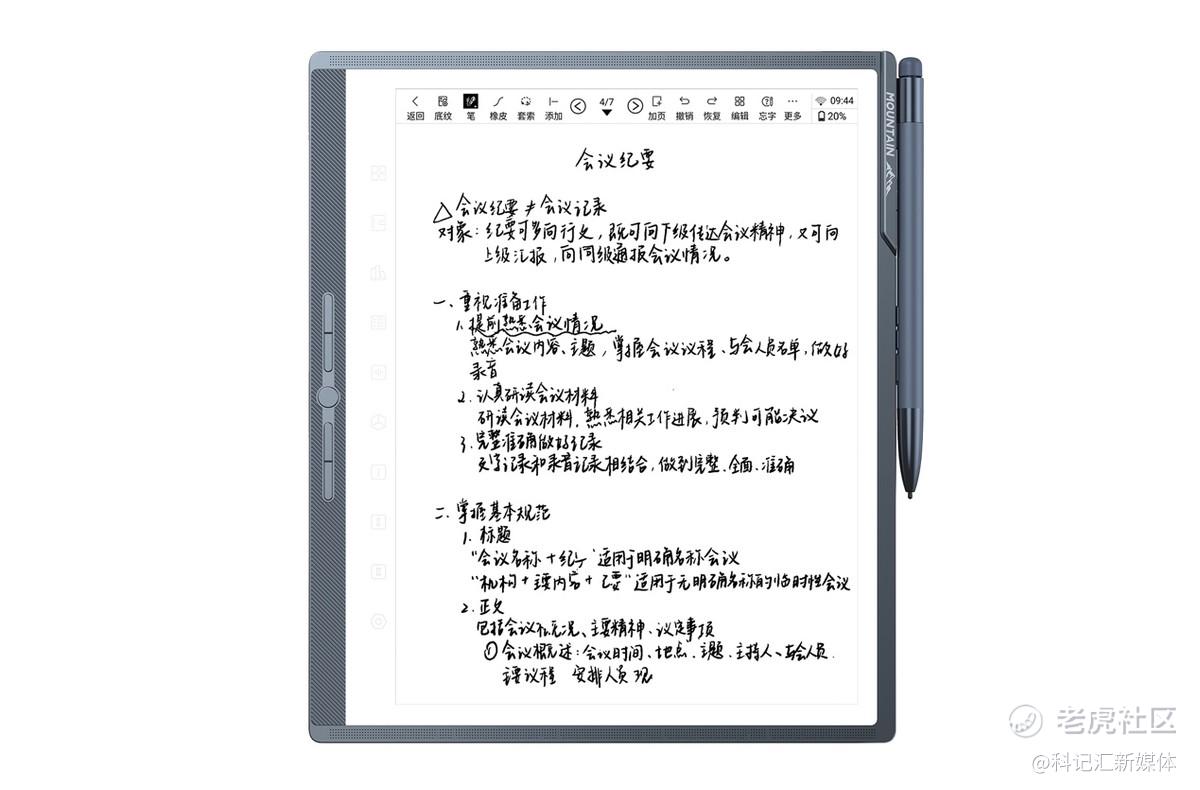 返回 底纹 笔 橡皮 套索 添加 4/7 加页 撤销 恢复 编辑 忘字 更多 09:44 20%
MOUNTAIN
会议纪要
会议纪要≠会议记录
对象:纪要可多向行文,既可向下级传达会议精神,又可向
上级汇报,向同级通报会议情况。
一、重视准备工作
1.提前熟悉会议情况
熟悉会议内容、主题,掌握会议议程、与会人员名单,做好
录音
2.认真研读会议材料
研读会议材料,熟悉相关工作进展,预判可能决议
3.完整准确做好记录
文字记录和录音记录相结合,做到完整、全面、准确
二、掌握基本规范
1.标题
"会议名称+纪 "适用于明确名称会议
"机构+主要内容+ 要"适用于无明确名称的临时性会议
2.正文
包括会议 况、主要精神、议定事项
①会议概述:会议时间、地点、主题、主持人、与会人员.
主要议程 安排人员 现
老虎社区
@科记汇新媒体